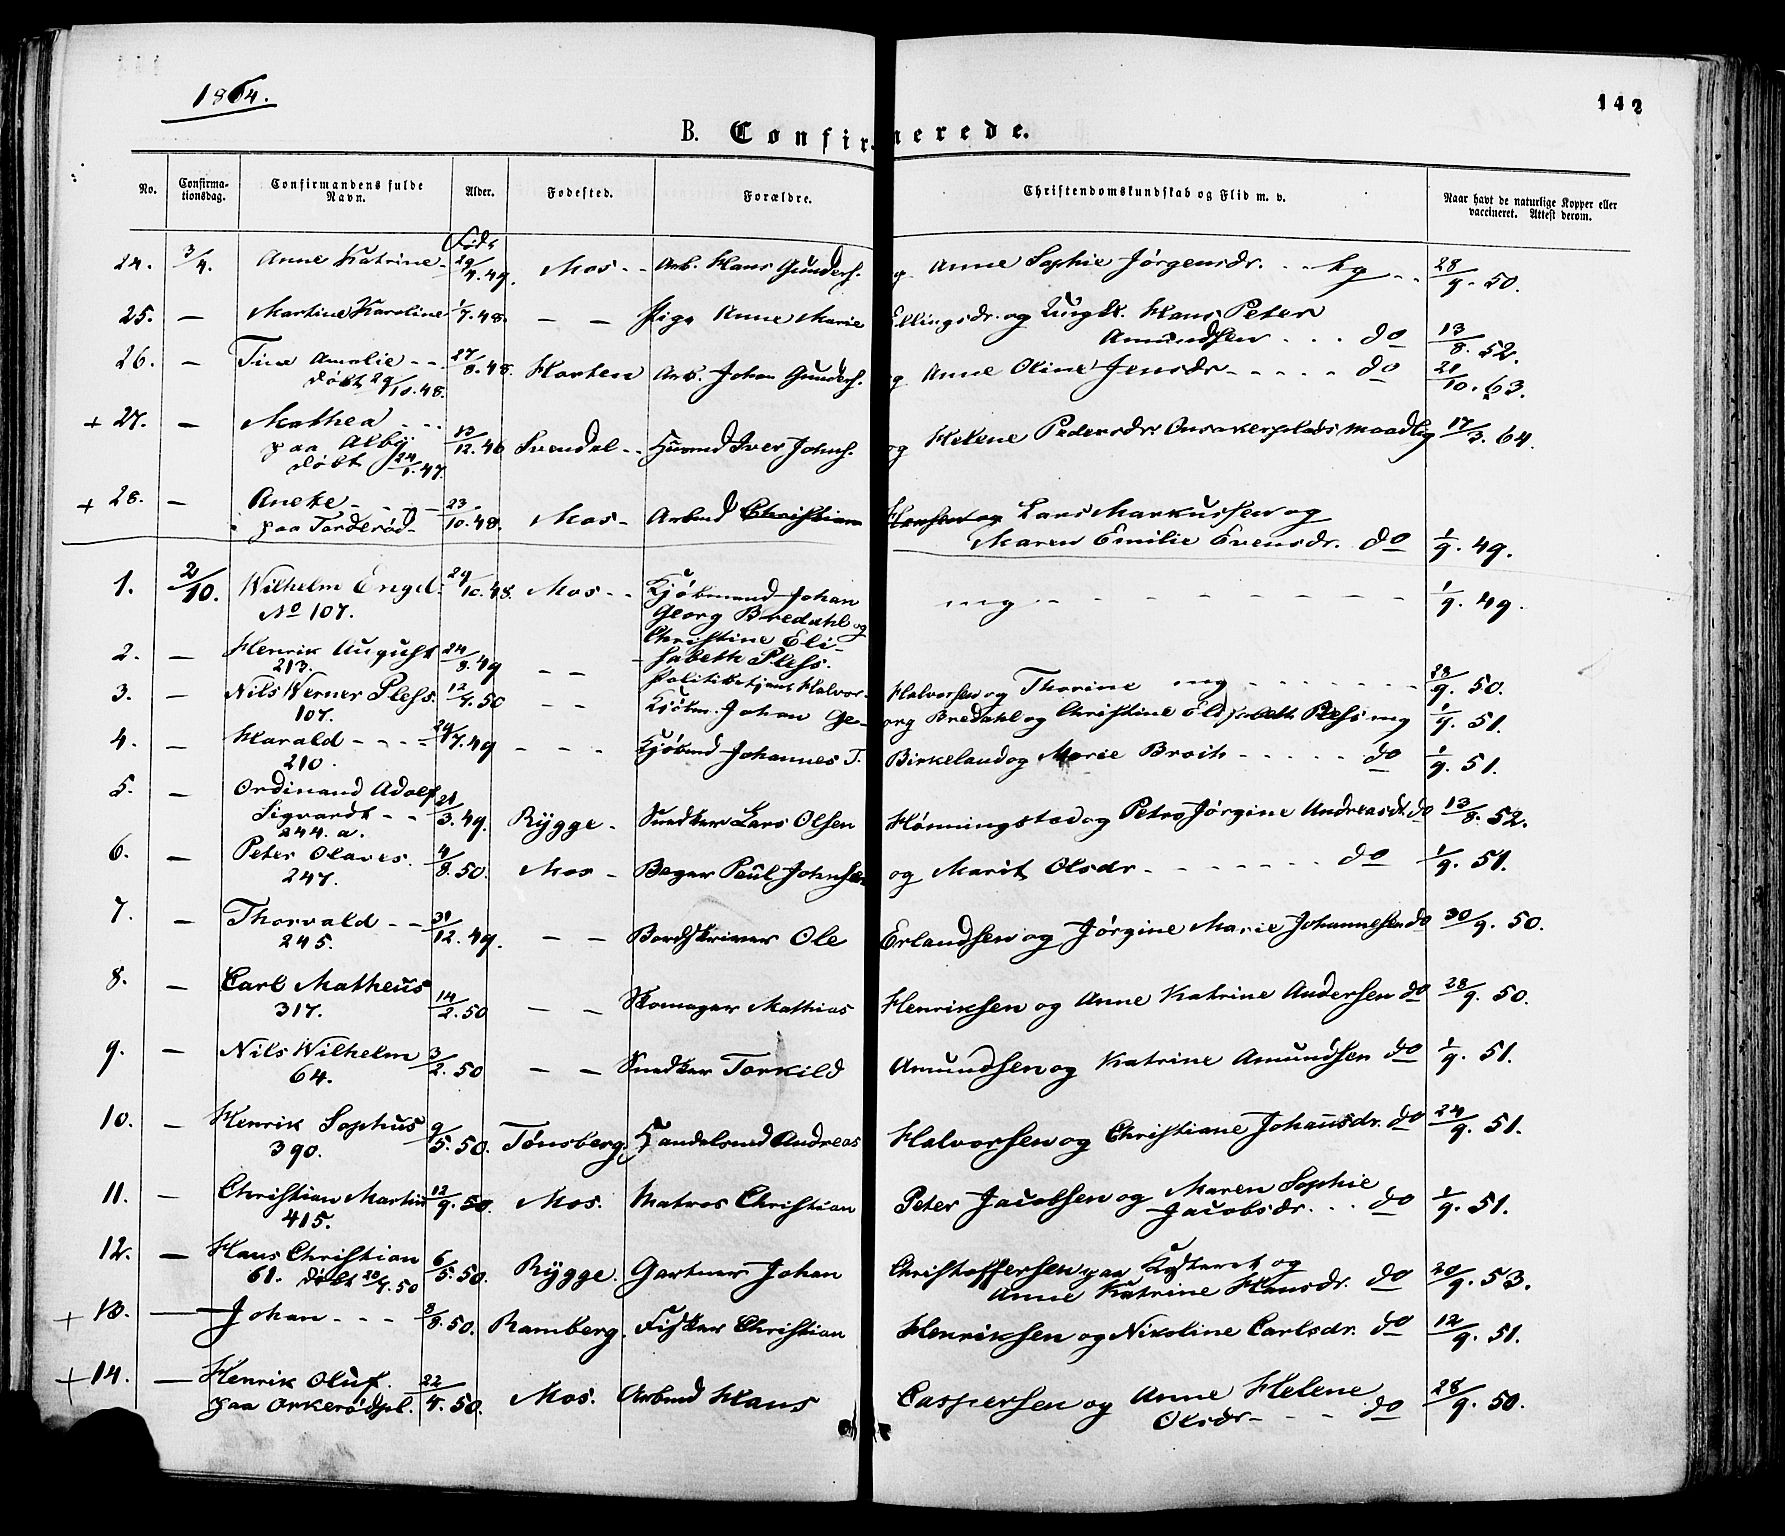 1864.
142
B. Confirmerede.
No. Confirma-tionsdag. Confirmandens fulde Navn. Alder. Fødested. Forældre. Christendomskundskab og Flid m. v. Naar havt de naturlige Kopper eller vaccineret. Attest derom.
Føds
24. 3/4. Anne Katrine 29/4.49. Mos - - Arb. Hans Gunders. og Anne Sophie Jørgensdr. - - hg - - 28/9. 50.
25. — Martine Karoline 1/7.48. — — Pige Anne Marie Ellingsdr. og Ungk. Hans Peter
Amundsen - - - do 13/8. 52.
26. — Tine Amalie - - 27/8.48. Horten Arb. Johan Gunders. og Anne Oline Jensdr - - - - - do 21/10. 63.
døbt 29/10.48.
+ 27. — Mathea - - - 13/12.46 Svendal - - Husmd Iver Johns. og Helene Pedersdr. Onsakerplads maadlig 17/3. 64.
paa Alby
døbt 24/1.47.
+ 28. — Aneke - - - 23/10.48. Mos - Arbmd Christian Hansen og Lars Markussen og
paa Torderød - Maren Emilie Evensdr. do 1/9. 49.
1. 2/10. Wilhelm Engel. 24/10.48. Mos - - Kjøbmand Johan mg - - - - - - - 1/9. 49.
No 107. Georg Bredahl og
Christine Eli-
sabeth Pless.
2. — Henrik August 24/8.49 — — Politibetjent Halvor Halvorsen og Thorine mg - - - - - - 28/9. 50.
213.
3. — Nils Werner Pless. 12/7.50 - - Kjøbm. Johan Ge-org Bredahl og Christine Elisabeth Pless mg 1/9. 51.
107.
4. — Harald - - - - 24/7.49 - - - Kjøbmd Johannes T. Birkeland og Marie Broch - - - - - do 1/9. 51.
210.
5. — Ordinand Adolf
Sigvardt - - 21/3.49. Rygge - Snedker Lars Olsen Hønningstad og Petra Jørgine Andreasdr. do 13/8. 52.
244. a.
6. — Peter Olaves. 4/8.50. Mos - Bager Paul Johnsen og Marit Olsdr - - - - - - do 1/9. 51.
247.
7. — Thorvald - - 31/12.49. — — Bordskriver Ole Erlandsen og Jørgine Marie Johannesen do 30/9. 50.
245.
8. — Carl Matheus 14/2.50 — — Skomager Mathias Henriksen og Anne Katrine Andersen do 28/9. 50.
317.
9. — Nils Wilhelm 3/2.50 — — Snedker Torkild Amundsen og Katrine Amundsen do 1/9. 51.
64.
10. — Henrik Sophus 9/5.50. Tønsberg. Handelsmd Andreas Halvorsen og Christiane Johansdr. do 24/9. 51.
390.
11. — Christian Martin 12/9.50. Mos. Matros Christian Peter Jacobsen og Maren Sophie
415. Jacobsdr. - - do 1/9. 51.
12. — Hans Christian 6/5.50. Rygge. Gartner Johan Christoffersen paa og
61. døbt 20/7.50 Anne Katrine Hansdr. do 20/9. 53.
+ 13. — Johan - - - 3/8.50. Ramberg. Fisker Christian Henriksen og Nikoline Carlsdr. do 12/9. 51.
+ 14. — Henrik Oluf. 22/4.50. Mos. Arbmd Hans Caspersen og Anne Helene
paa Orkerødpl. Olsdr - - - do 28/9. 50.